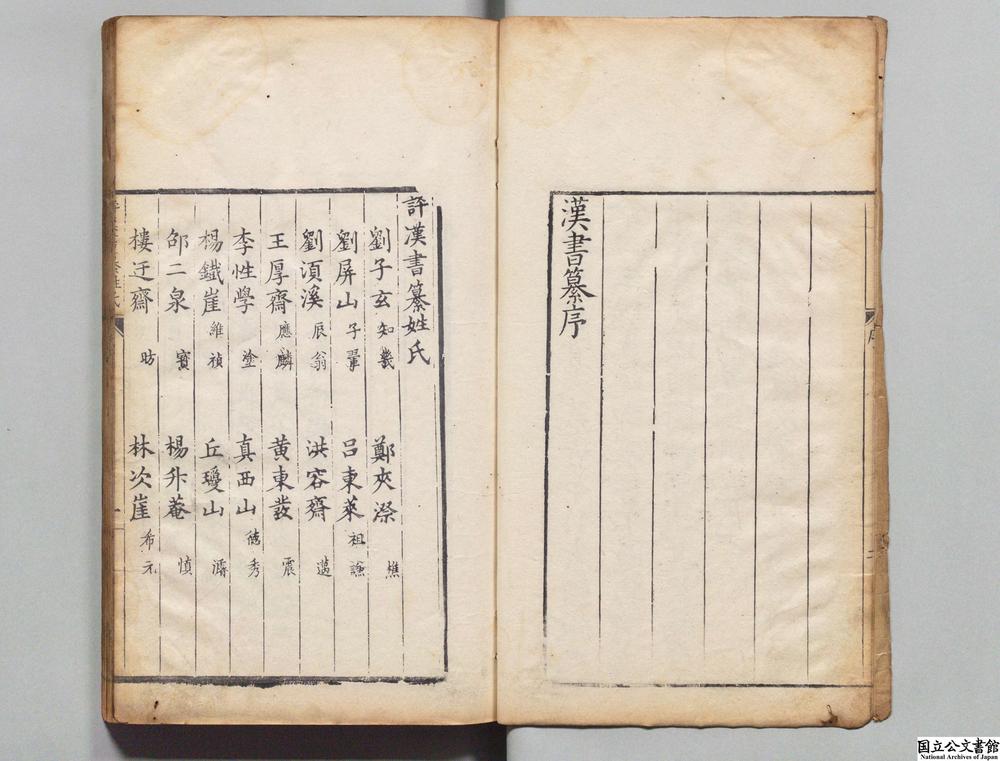 漢書纂序
評漢書纂姓氏
劉子玄 知幾 鄭夾漈 樵
劉屏山 子翬 呂東萊 祖謙
劉須溪 辰翁 洪容齋 邁
王厚齋 應麟 黃東發 震
李性學 塗 真西山 德秀
楊鐵崖 維禎 丘瓊山 濬
邵二泉 寶 楊升菴 慎
樓迂齋 昉 林次崖 希元
国立公文書館
National Archives of Japan